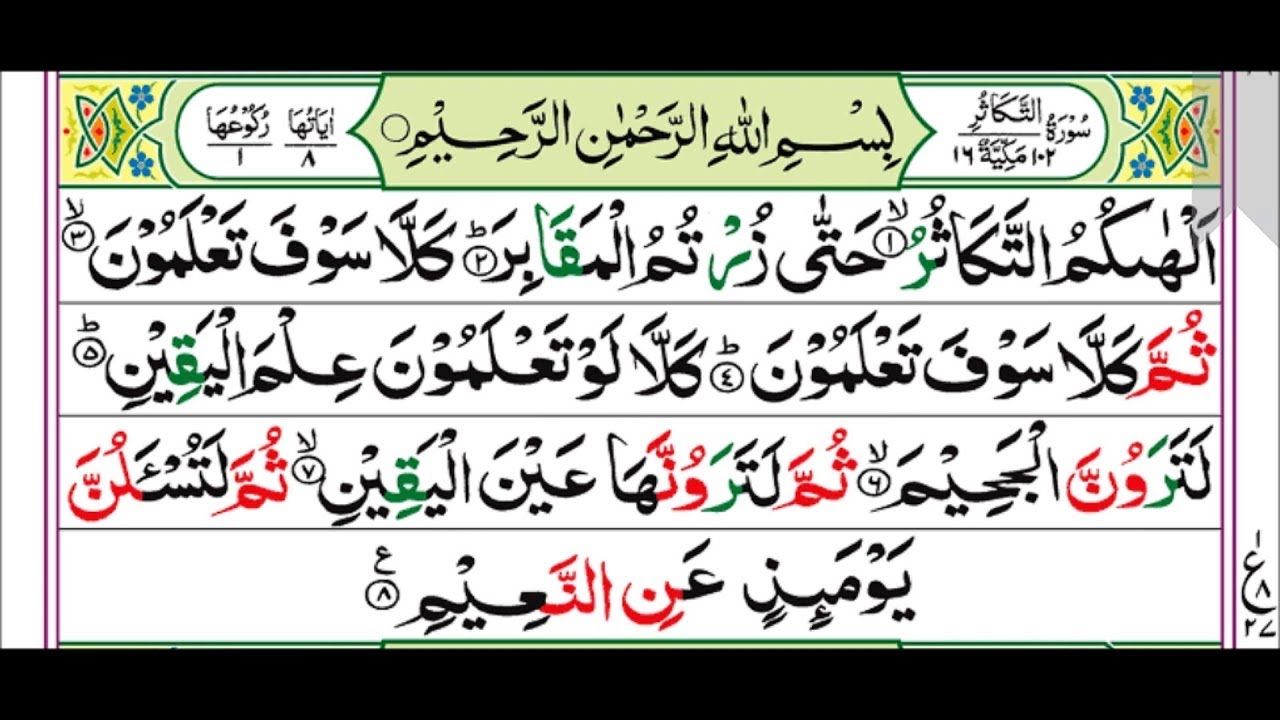 سُوْرَةُ التَّكَاثُرِ
١٠٢ مَكِّيَّةٌ ١٦
بِسْمِ اللهِ الرَّحْمٰنِ الرَّحِيْمِ○
اٰيَاتُهَا ٨
رُكُوْعُهَا ١
اَلْهٰىكُمُ التَّكَاثُرُ ۙ﴿۱﴾ حَتّٰى زُرْتُمُ الْمَقَابِرَ ؕ﴿۲﴾ كَلَّا سَوْفَ تَعْلَمُوْنَ ۙ﴿۳﴾
ثُمَّ كَلَّا سَوْفَ تَعْلَمُوْنَ ؕ﴿۴﴾ كَلَّا لَوْ تَعْلَمُوْنَ عِلْمَ الْيَقِيْنِ ؕ﴿۵﴾
لَتَرَوُنَّ الْجَحِيْمَ ۙ﴿۶﴾ ثُمَّ لَتَرَوُنَّهَا عَيْنَ الْيَقِيْنِ ۙ﴿۷﴾ ثُمَّ لَتُسْـَٔلُنَّ
يَوْمَىِٕذٍ عَنِ النَّعِيْمِ ﴿۸﴾ ع
١
ع
٨
٢٧